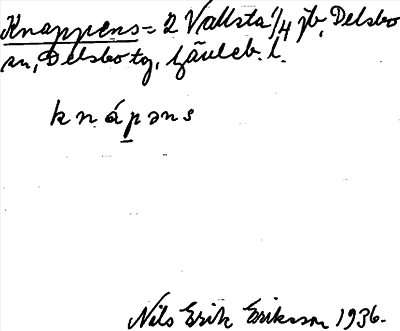 Knappens = 2 Vallsta 1/4 jb, Delsbo
sn, Delsbo tg, Gävleb. l.
knápəns
Nils Erik Eriksson 1936.